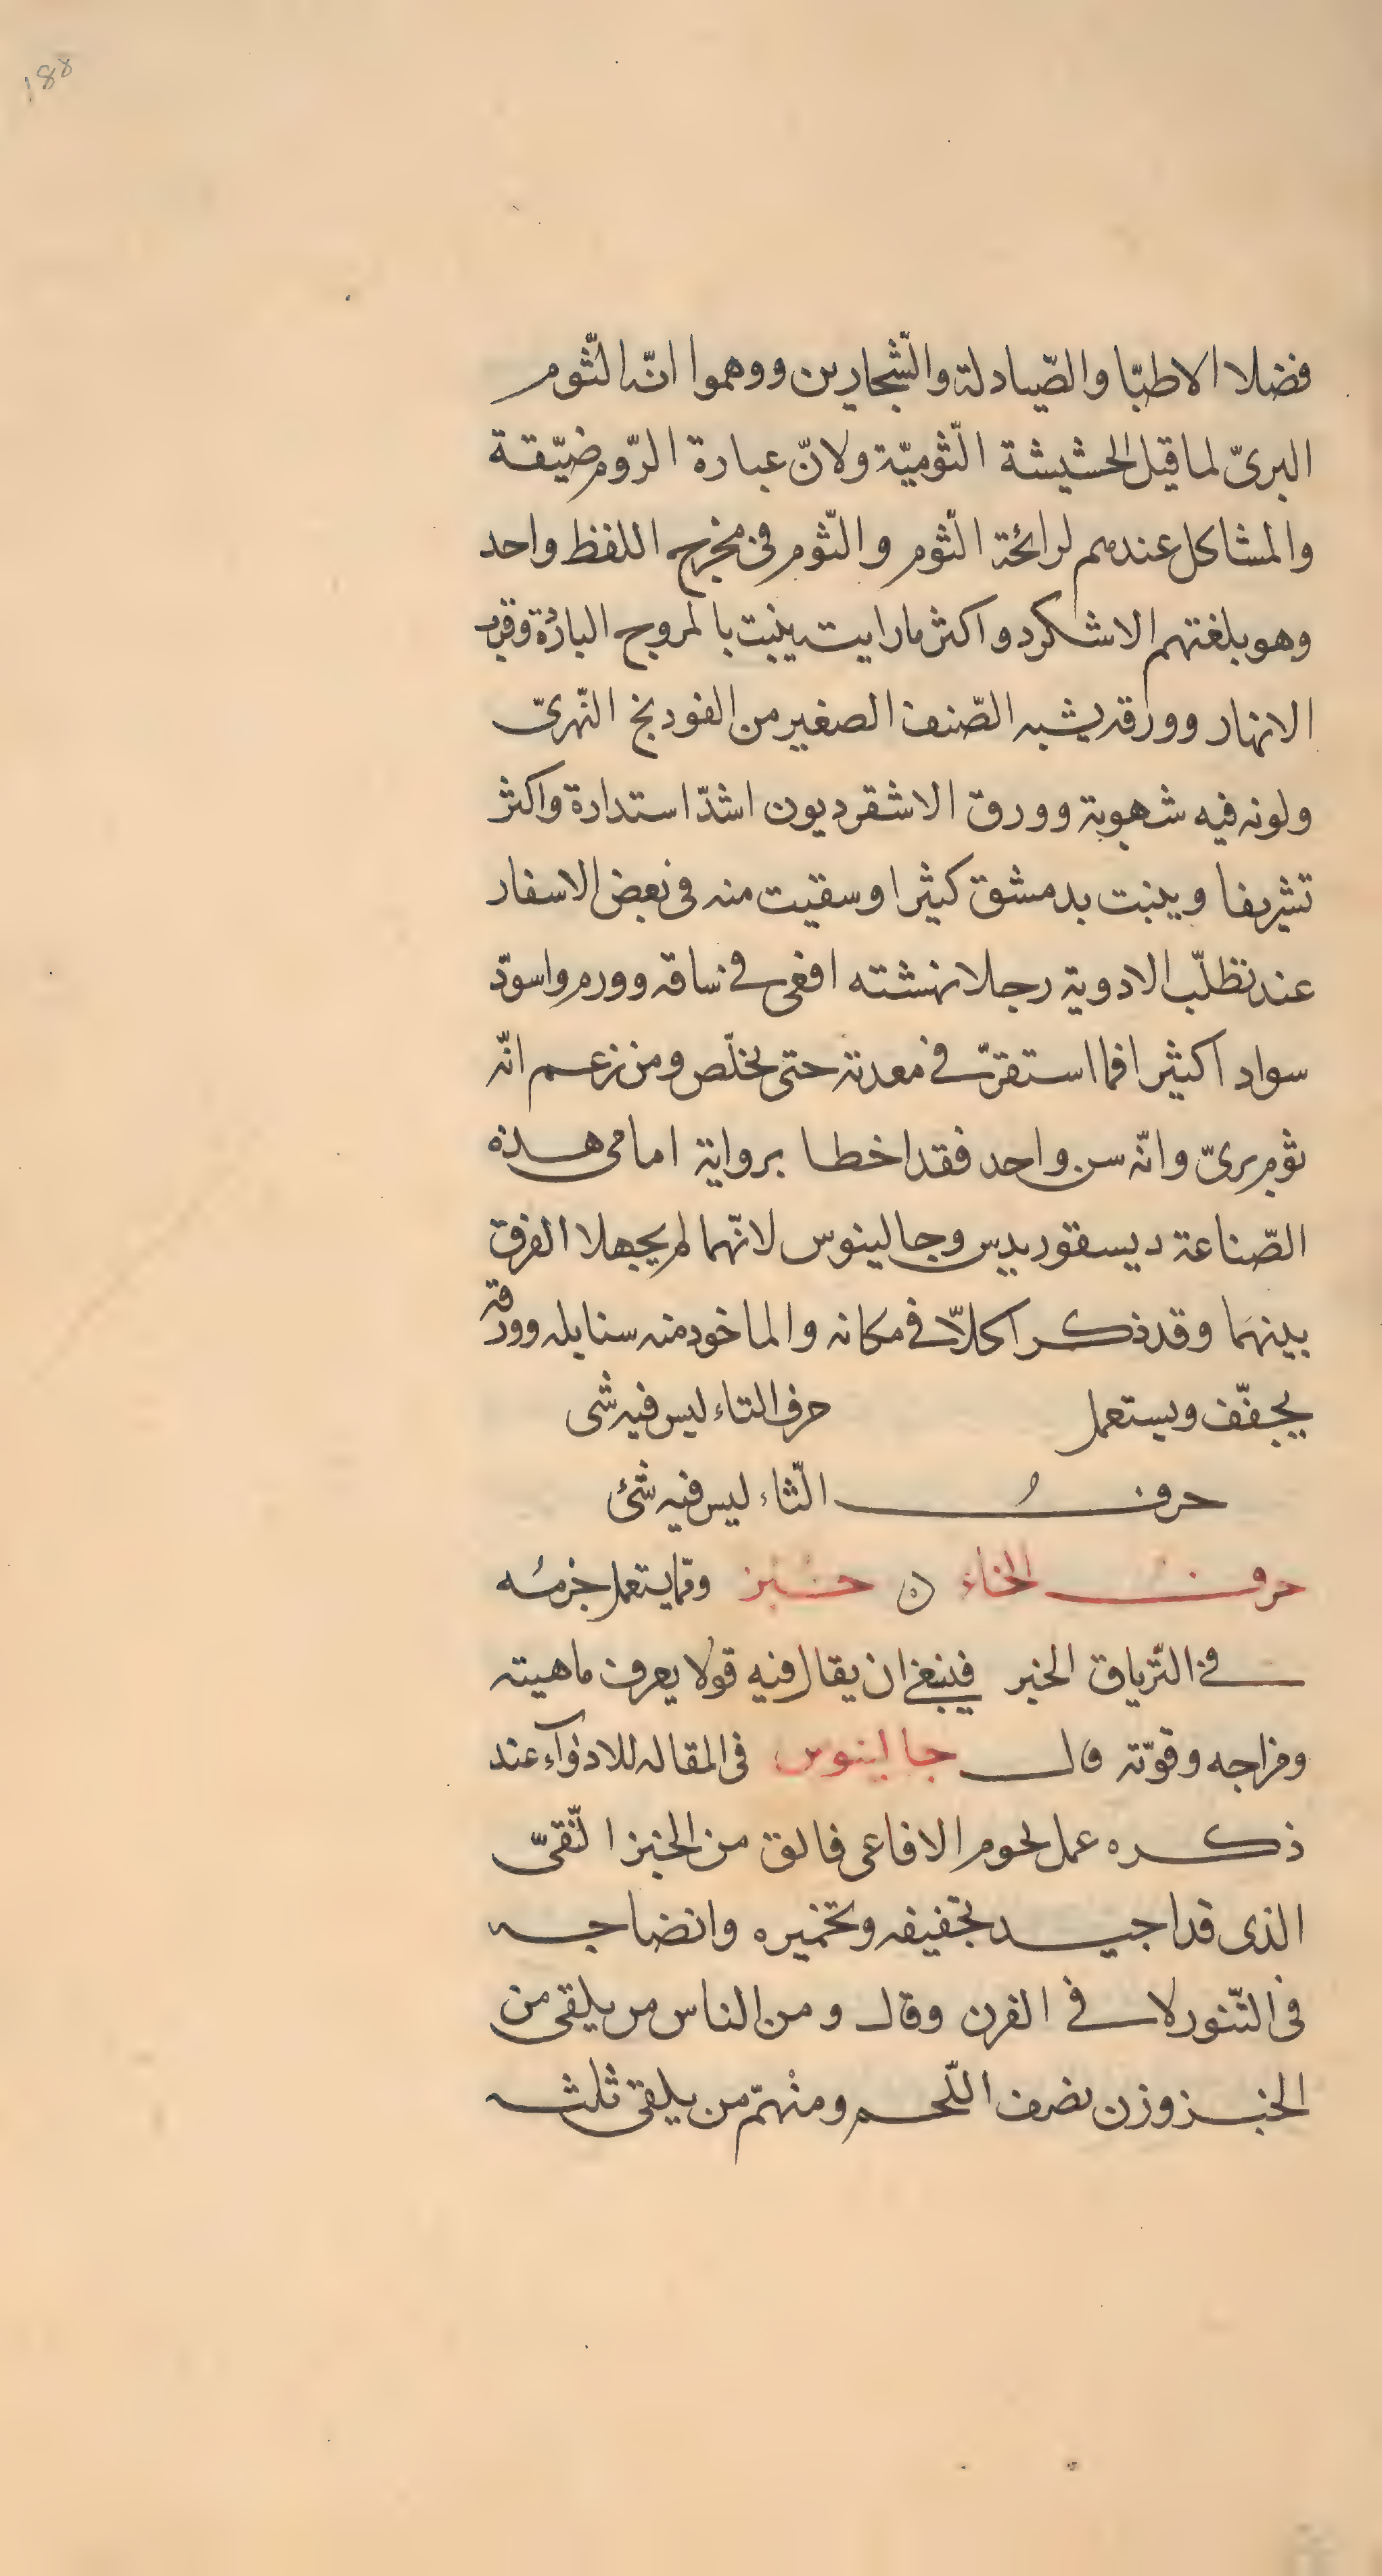 188
فضلا الاطبّا والصّيادلة والشّجارين ووهموا انّه الثّوم
البرىّ لما قيل الحشيشة الثّوميّة ولانّ عبارة الرّوم ضيّقة
والمشاكل عندهم لرائحة الثّوم والثّوم فى مخرج اللفظ واحد
وهو بلغتهم الاشكرد واكثر ما رايت ينبت بالمروج الباردة وقرب
الانهار وورقه يشبه الصّنف الصغير من الفودنج النّهرىّ
ولونه فيه شهوبة وورق الاشقرديون اشدّ استدارة واكثر
تشريفا وينبت بدمشق كثيرا وسقيت منه فى بعض الاسفار
عند تطلّب الادوية رجلا نهشته افعى فى ساقه وورم واسودّ
سوادا كثيرا فما استقرّ فى معدته حتى تخلّص ومن زعم انّه
ثوم برىّ وانّه سن واحد فقد اخطا برواية امامى هذه
الصّناعة ديسقوريدس وجالينوس لانّهما لم يجهلا الفرق
بينهما وقد ذكرا كلاّ فى مكانه والماخود منه سنابله وورقه
يجفّف ويستعمل حرف التاء ليس فيه شى
حرفُ الثّاء ليس فيه شئ
حرف الخاء ن خبز وممّا يستعمل جرمُه
فى التّرياق الخبر فينبغى ان يقال فيه قولا يعرف ماهيته
ومزاجه وقوّته قال جالينوس فى المقاله للادوآء عند
ذكره عمل لحوم الافاعى فالق من الخبز النّقىّ
الذى قد اجيد تجفيفه وتخميره وانضاجه
فى التّنور لا فى الفرن وقال ومن الناس من يلقى من
الخبز وزن نصف اللّحم ومنهم من يلقى ثلثه